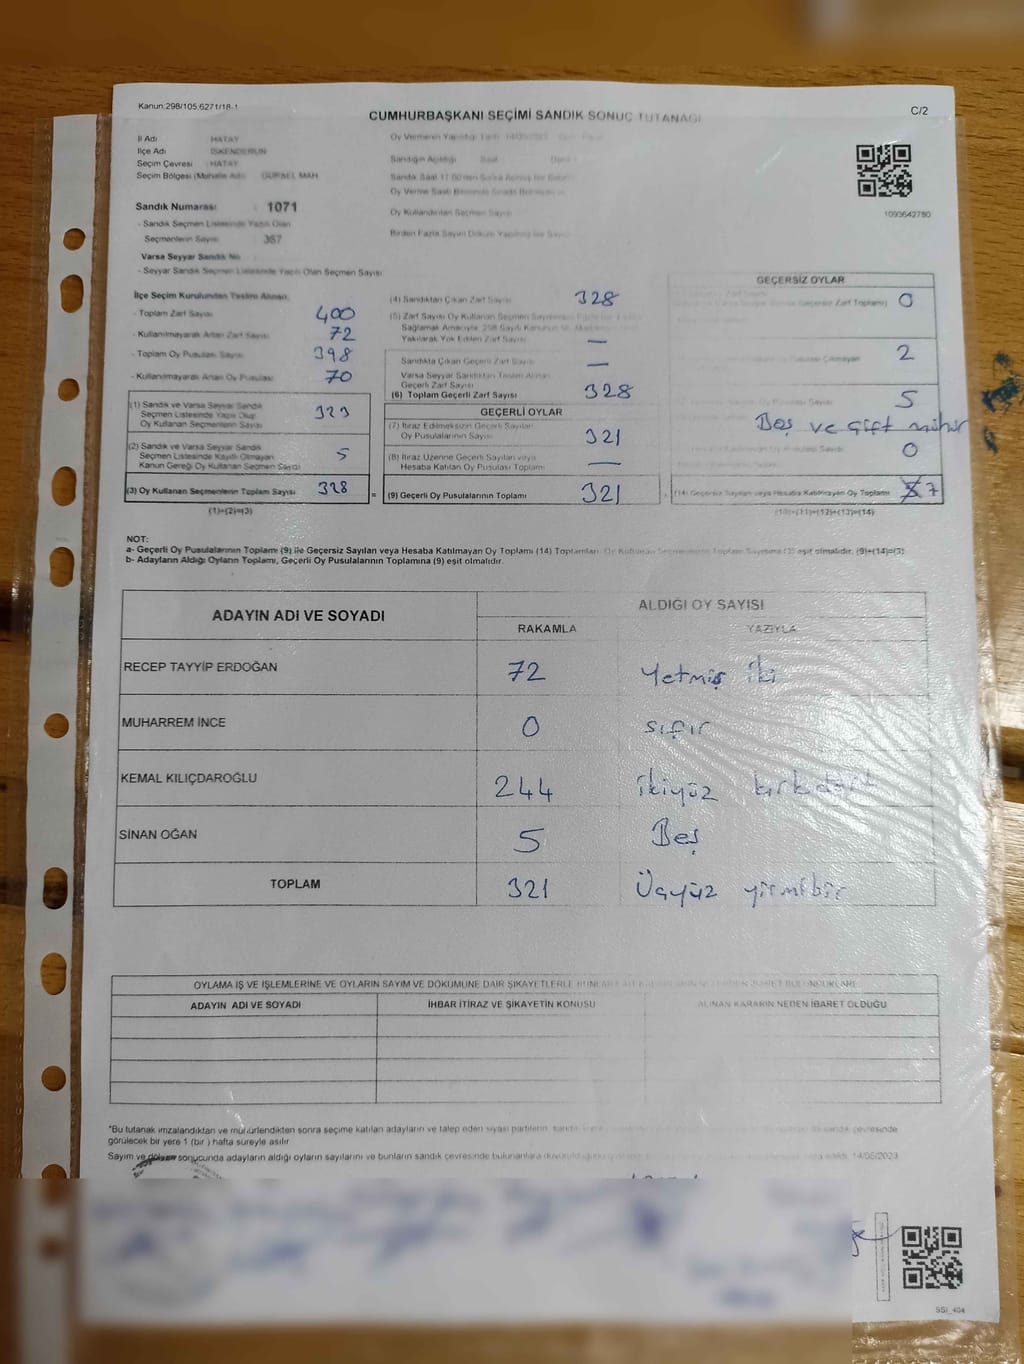 Kanun:298/105,6271/18-1
C/2
CUMHURBAŞKANI SEÇİMİ SANDIK SONUÇ TUTANAĞI
İl Adı HATAY
İlçe Adı İSKENDERUN
Seçim Çevresi HATAY
Seçim Bölgesi (Mahalle Adı) GÜRSEL MAH
Sandık Numarası: 1071
- Sandık Seçmen Listesinde Yazılı Olan
Seçmenlerin Sayısı 367
Varsa Seyyar Sandık No
- Seyyar Sandık Seçmen Listesinde Yazılı Olan Seçmen Sayısı
Oy Vermenin Yapıldığı Tarih 14/05/2023
Sandığın Açıldığı Saat
Oy Kullandırılan Seçmen Sayısı
1093642780
İlçe Seçim Kurulundan Teslim Alınan;
- Toplam Zarf Sayısı 400
- Kullanılmayarak Artan Zarf Sayısı 72
- Toplam Oy Pusulası Sayısı 398
- Kullanılmayarak Artan Oy Pusulası 70
(1) Sandık ve Varsa Seyyar Sandık
Seçmen Listesinde Yazılı Olup
Oy Kullanan Seçmenlerin Sayısı 323
(2) Sandık ve Varsa Seyyar Sandık
Seçmen Listesinde Kayıtlı Olmayan
Kanun Gereği Oy Kullanan Seçmen Sayısı 5
(3) Oy Kullanan Seçmenlerin Toplam Sayısı 328 =
(1)+(2)=(3)
(4) Sandıktan Çıkan Zarf Sayısı 328
(5) Zarf Sayısı Oy Kullanan Seçmen Sayısından
Sağlamak Amacıyla, 298 Sayılı Kanunun
Yakılarak Yok Edilen Zarf Sayısı —
Sandıkta Çıkan Geçerli Zarf Sayısı —
Varsa Seyyar Sandıktan Teslim Alınan
Geçerli Zarf Sayısı
(6) Toplam Geçerli Zarf Sayısı 328
GEÇERLİ OYLAR
(7) İtiraz Edilmeksizin Geçerli Sayılan
Oy Pusulalarının Sayısı 321
(8) İtiraz Üzerine Geçerli Sayılan veya
Hesaba Katılan Oy Pusulası Toplamı —
(9) Geçerli Oy Pusulalarının Toplamı 321
GEÇERSİZ OYLAR
0
2
5
Beş ve çift mühür
0
(14) Geçersiz Sayılan veya Hesaba Katılmayan Oy Toplamı 7
(10)+(11)+(12)+(13)=(14)
NOT:
a- Geçerli Oy Pusulalarının Toplamı (9) ile Geçersiz Sayılan veya Hesaba Katılmayan Oy Toplamı (14) Toplamları, Oy Kullanan Seçmenlerin Toplam Sayısına (3) eşit olmalıdır. (9)+(14)=(3)
b- Adayların Aldığı Oyların Toplamı, Geçerli Oy Pusulalarının Toplamına (9) eşit olmalıdır.
ADAYIN ADI VE SOYADI
ALDIĞI OY SAYISI
RAKAMLA YAZIYLA
RECEP TAYYİP ERDOĞAN 72 Yetmiş iki
MUHARREM İNCE 0 sıfır
KEMAL KILIÇDAROĞLU 244 ikiyüz kırkdört
SİNAN OĞAN 5 Beş
TOPLAM 321 Üçyüz yirmibir
OYLAMA İŞ VE İŞLEMLERİNE VE OYLARIN SAYIM VE DÖKÜMÜNE DAİR ŞİKAYETLERLE
ADAYIN ADI VE SOYADI İHBAR İTİRAZ VE ŞİKAYETİN KONUSU ALINAN KARARIN NEDEN İBARET OLDUĞU
*Bu tutanak imzalandıktan ve mühürlendikten sonra seçime katılan adayların ve talep eden siyasi partilerin çevresinde
görülecek bir yere 1 (bir ) hafta süreyle asılır.
Sayım ve döküm sonucunda adayların aldığı oyların sayılarını ve bunların sandık çevresinde bulunanlara 14/05/2023
SSI_404